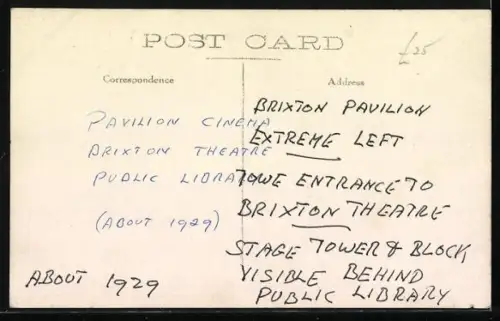 POST CARD
£25
Correspondence
Address
PAVILION CINEMA
BRIXTON THEATRE
PUBLIC LIBRA
(ABOUT 1929)
ABOUT 1929
BRIXTON PAVILION
EXTREME LEFT
ENTRANCE TO
BRIXTON THEATRE
STAGE TOWER & BLOCK
VISIBLE BEHIND
PUBLIC LIBRARY